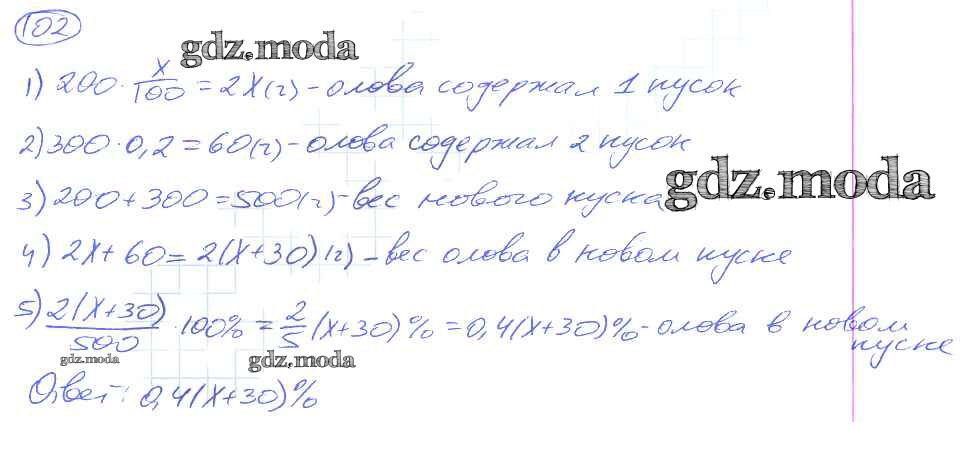 102
gdz.moda
1) 200 · x/100 = 2x(г) - олова содержал 1 кусок
2) 300 · 0,2 = 60(г) - олова содержал 2 кусок
gdz.moda
3) 200 + 300 = 500(г) - вес нового куска
4) 2x + 60 = 2(x+30) (г) - вес олова в новом куске
5) 2(x+30)/500 · 100% = 2/5 (x+30)% = 0,4(x+30)% - олова в новом
куске
gdz.moda
gdz.moda
Ответ: 0,4(x+30)%